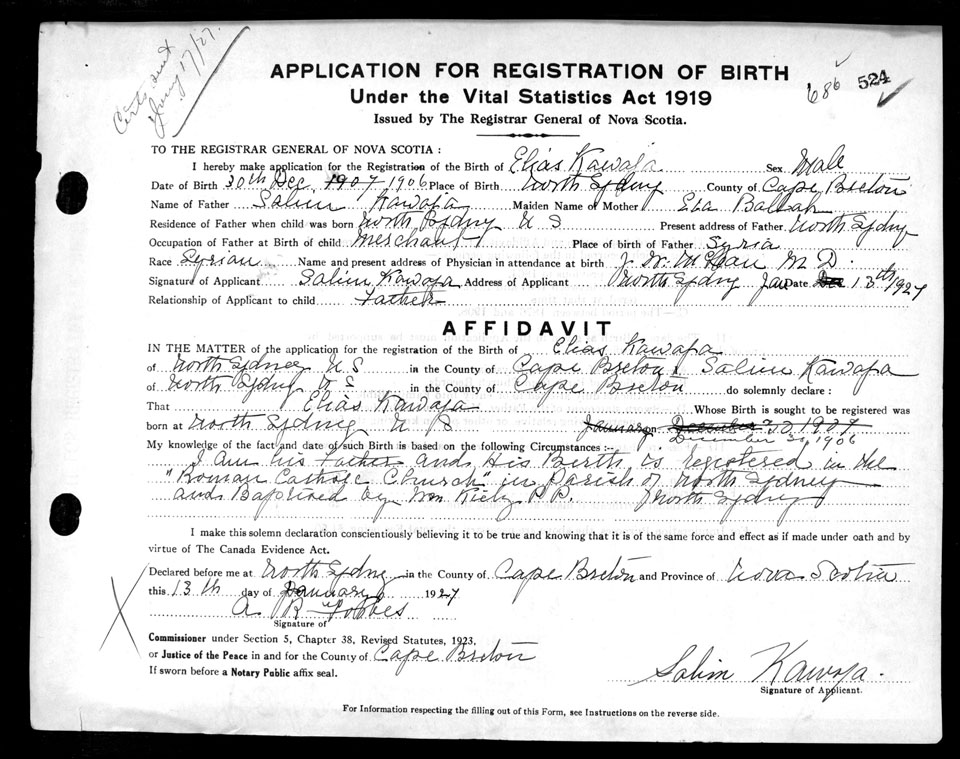 Certs sent
Jany 17/27.
686 524
APPLICATION FOR REGISTRATION OF BIRTH
Under the Vital Statistics Act 1919
Issued by The Registrar General of Nova Scotia.
TO THE REGISTRAR GENERAL OF NOVA SCOTIA :
I hereby make application for the Registration of the Birth of Elias Kawaja Sex Male
Date of Birth 30th Dec. 1907 1906 Place of Birth North Sydney County of Cape Breton
Name of Father Salim Kawaja Maiden Name of Mother Eba Ballah
Residence of Father when child was born North Sydney N S Present address of Father North Sydney
Occupation of Father at Birth of child Merchant Place of birth of Father Syria
Race Syrian Name and present address of Physician in attendance at birth M D.
Signature of Applicant Salim Kawaja Address of Applicant North Sydney Jan Date Dec 13th 1927
Relationship of Applicant to child Father
AFFIDAVIT
IN THE MATTER of the application for the registration of the Birth of Elias Kawaja
of North Sydney N S in the County of Cape Breton I Salim Kawaja
of North Sydney N S in the County of Cape Breton do solemnly declare :
That Elias Kawaja Whose Birth is sought to be registered was
born at North Sydney N S on December 30 1907
December 30, 1906
My knowledge of the fact and date of such Birth is based on the following Circumstances :-
I Am his Father and His Birth is registered in the
"Roman Catholic Church" in Parish of North Sydney
and Baptised by Wm Kiely P.P. North Sydney
I make this solemn declaration conscientiously believing it to be true and knowing that it is of the same force and effect as if made under oath and by
virtue of The Canada Evidence Act.
Declared before me at North Sydney in the County of Cape Breton and Province of Nova Scotia
this 13th day of January 1927
A R Forbes
Signature of
Commissioner under Section 5, Chapter 38, Revised Statutes, 1923,
or Justice of the Peace in and for the County of Cape Breton
If sworn before a Notary Public affix seal.
Salim Kawaja.
Signature of Applicant.
For Information respecting the filling out of this Form, see Instructions on the reverse side.